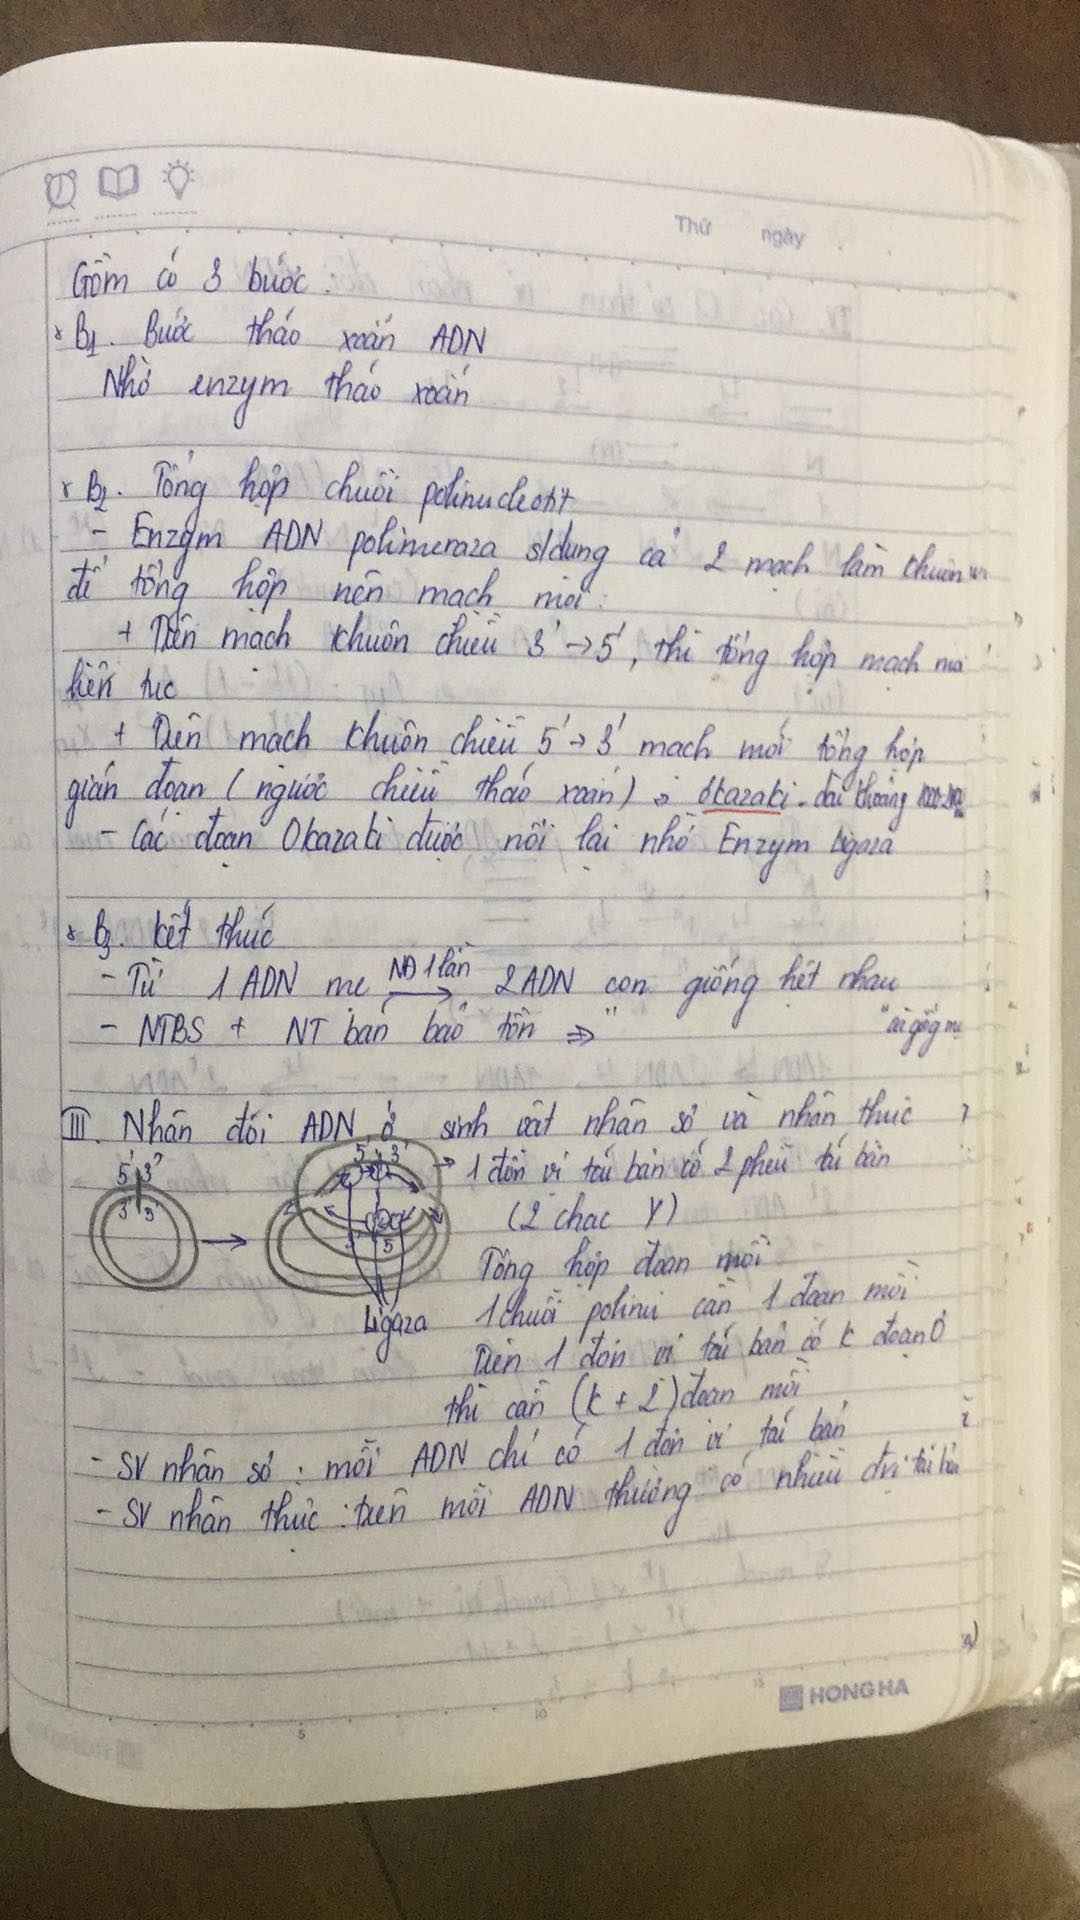 Thứ ngày
Gồm có 3 bước:
* B1. Bước tháo xoắn ADN
Nhờ enzym tháo xoắn
* B2. Tổng hợp chuỗi polinucleotit
- Enzym ADN polimeraza s/dụng cả 2 mạch làm khuôn
để tổng hợp nên mạch mới:
+ Trên mạch khuôn chiều 3' → 5', thì tổng hợp mạch mới
liên tục
+ Trên mạch khuôn chiều 5' → 3' mạch mới tổng hợp
gián đoạn (ngược chiều tháo xoắn) → Okazaki. dài khoảng
- Các đoạn Okazaki được nối lại nhờ Enzym ligaza
* B3. Kết thúc
- Từ 1 ADN mẹ NĐ 1 lần → 2 ADN con giống hết nhau
- NTBS + NT bán bảo tồn ⇒ "
III. Nhân đôi ADN ở sinh vật nhân sơ và nhân thực
5' 3'
3' 5'
5' 3'
→ 1 đơn vị tái bản có 2 phễu tái bản
(2 chạc Y)
Tổng hợp đoạn mồi
Ligaza
1 chuỗi polinu cần 1 đoạn mồi
Trên 1 đơn vị tái bản có k đoạn O
thì cần (k + 2) đoạn mồi
- SV nhân sơ: mỗi ADN chỉ có 1 đơn vị tái bản
- SV nhân thực: trên mỗi ADN thường có nhiều đvị tái bản
HONG HA
5 10 15